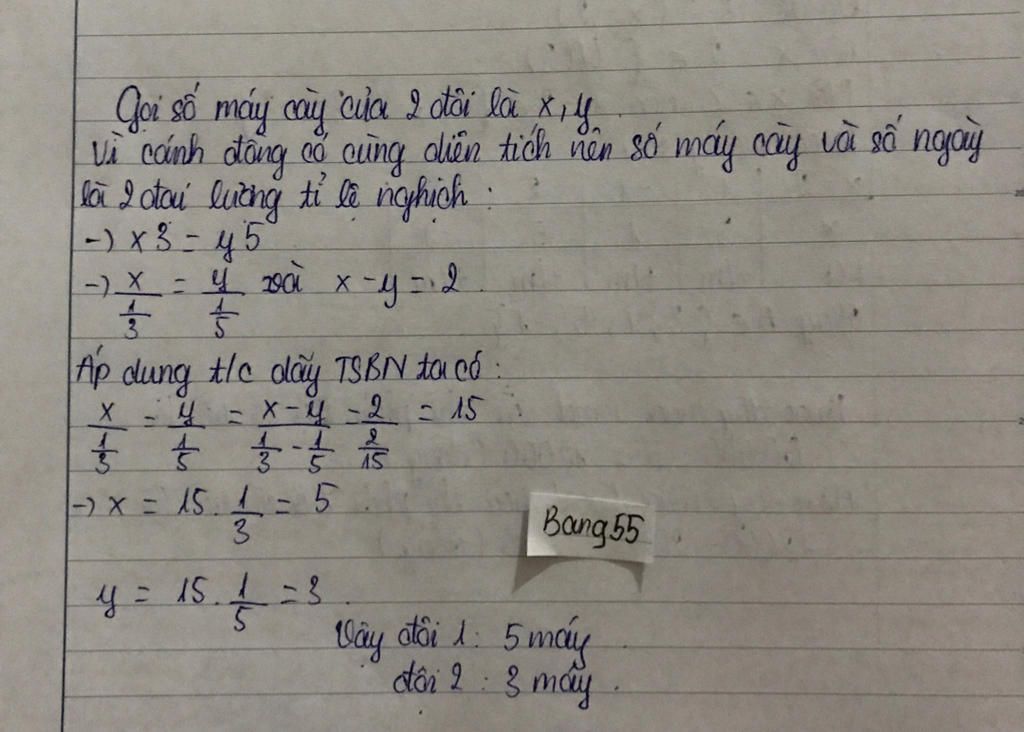 Gọi số máy cày của 2 đội là x, y.
Vì cánh đồng có cùng diện tích nên số máy cày và số ngày
là 2 đại lượng tỉ lệ nghịch :
-) x3 = y5
-) x/(1/3) = y/(1/5) và x - y = 2.
Áp dụng t/c dãy TSBN ta có :
x/(1/3) = y/(1/5) = (x - y)/(1/3 - 1/5) = 2/(2/15) = 15
-) x = 15 . 1/3 = 5.
Bang55
y = 15 . 1/5 = 3.
Vậy đội 1 : 5 máy.
đội 2 : 3 máy.